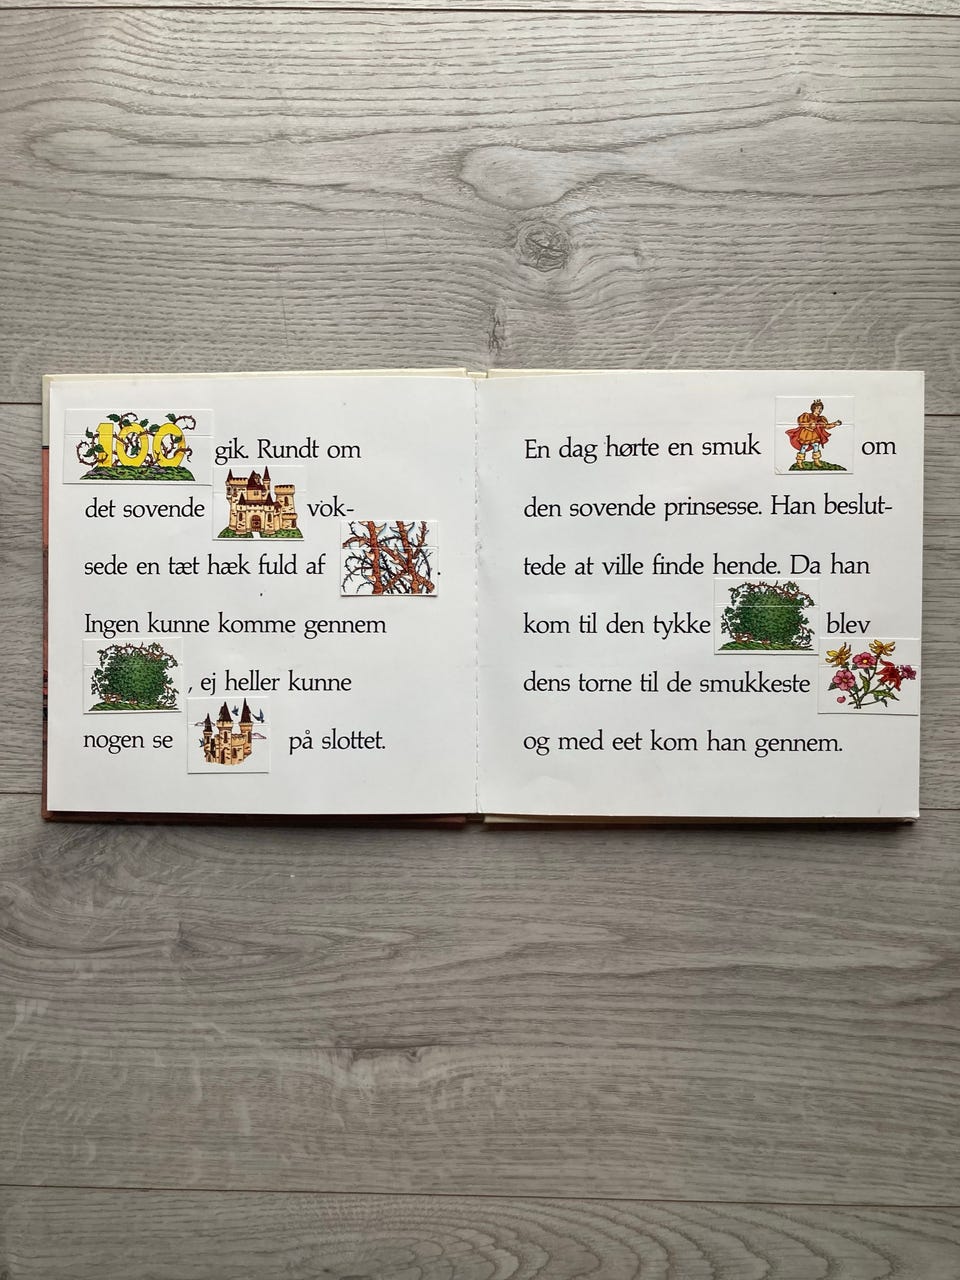 100 gik. Rundt om
det sovende vok-
sede en tæt hæk fuld af .
Ingen kunne komme gennem
, ej heller kunne
nogen se på slottet.
En dag hørte en smuk om
den sovende prinsesse. Han beslut-
tede at ville finde hende. Da han
kom til den tykke blev
dens torne til de smukkeste
og med eet kom han gennem.